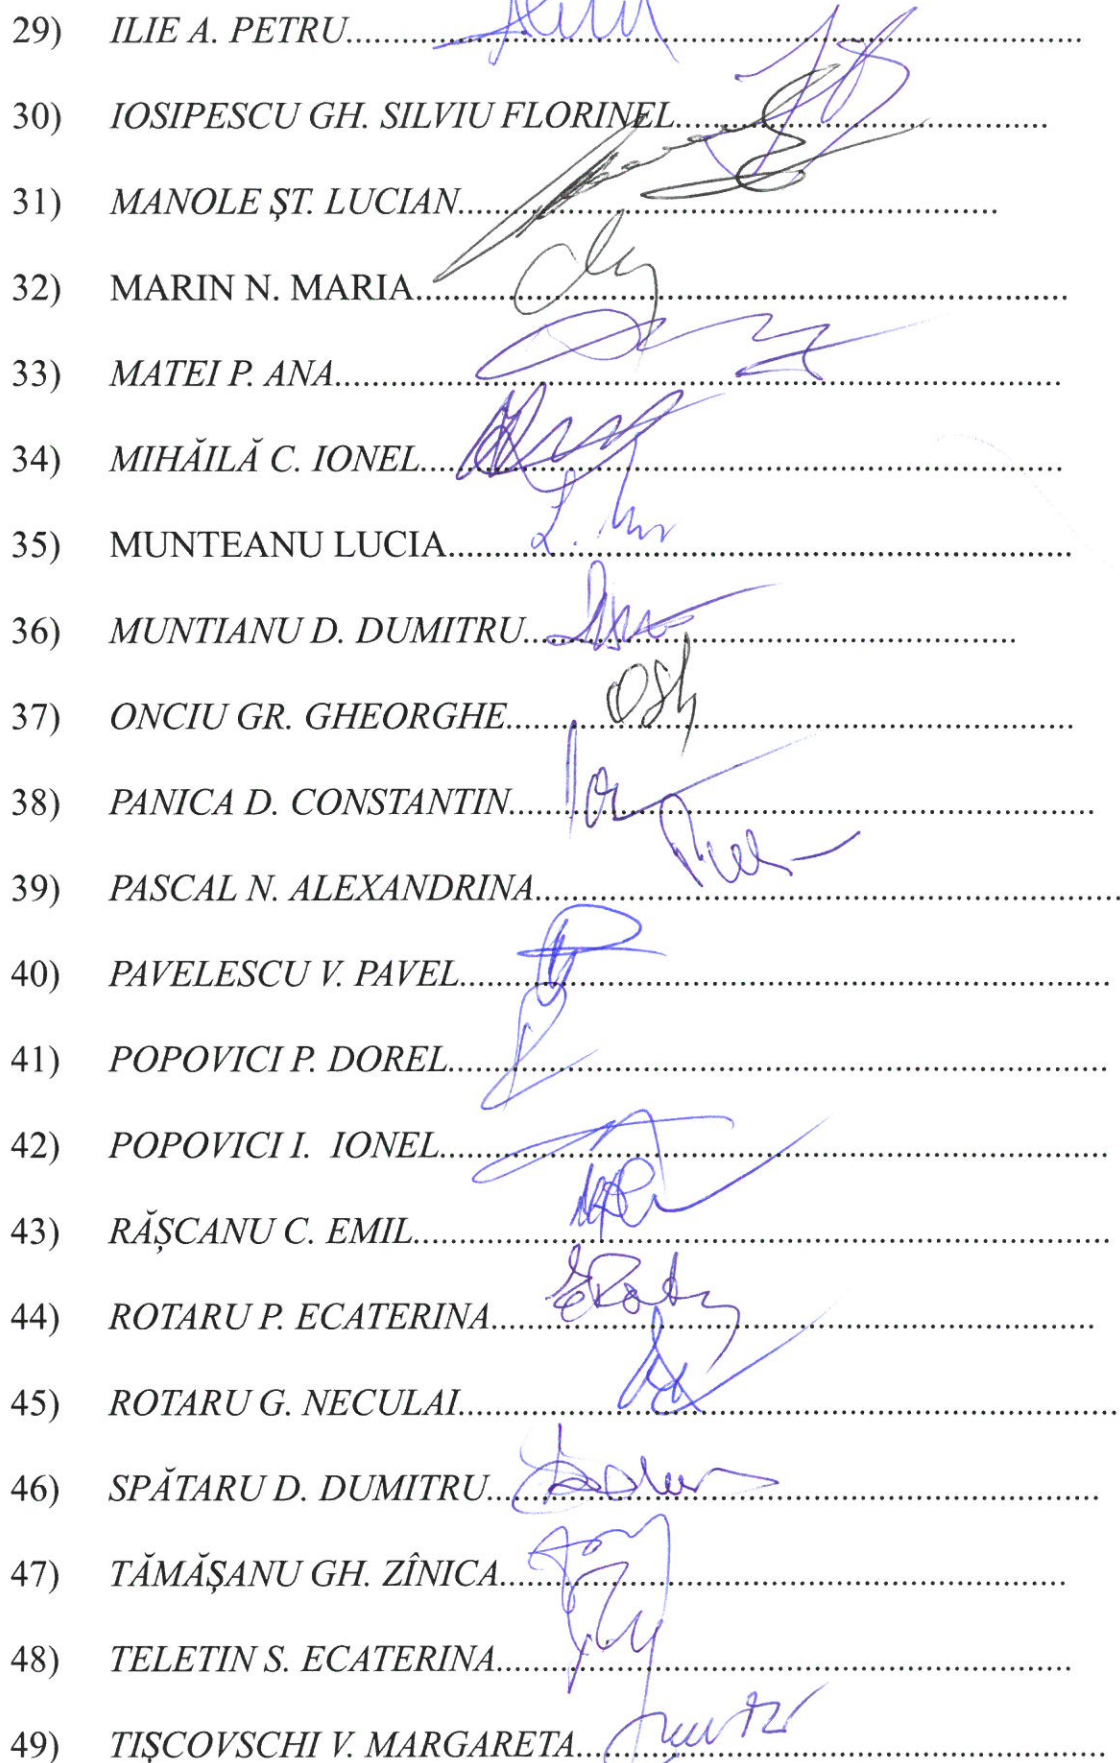 29) ILIE A. PETRU
30) IOSIPESCU GH. SILVIU FLORINEL
31) MANOLE ȘT. LUCIAN
32) MARIN N. MARIA
33) MATEI P. ANA
34) MIHĂILĂ C. IONEL
35) MUNTEANU LUCIA
36) MUNTIANU D. DUMITRU
37) ONCIU GR. GHEORGHE
38) PANICA D. CONSTANTIN
39) PASCAL N. ALEXANDRINA
40) PAVELESCU V. PAVEL
41) POPOVICI P. DOREL
42) POPOVICI I. IONEL
43) RĂȘCANU C. EMIL
44) ROTARU P. ECATERINA
45) ROTARU G. NECULAI
46) SPĂTARU D. DUMITRU
47) TĂMĂȘANU GH. ZÎNICA
48) TELETIN S. ECATERINA
49) TIȘCOVSCHI V. MARGARETA